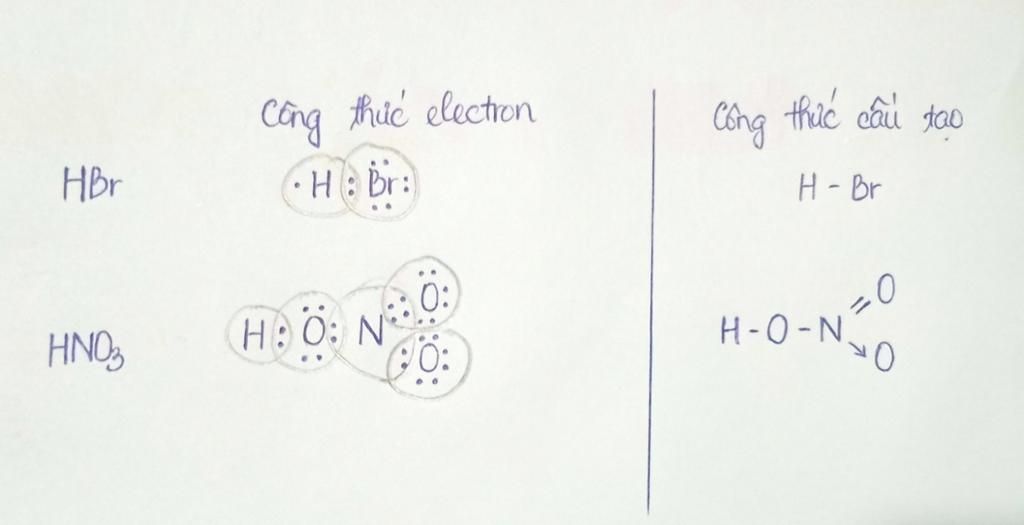 Công thức electron
Công thức cấu tạo
HBr
· H : Br :
H - Br
HNO₃
H : O : N O O
H - O - N = O → O